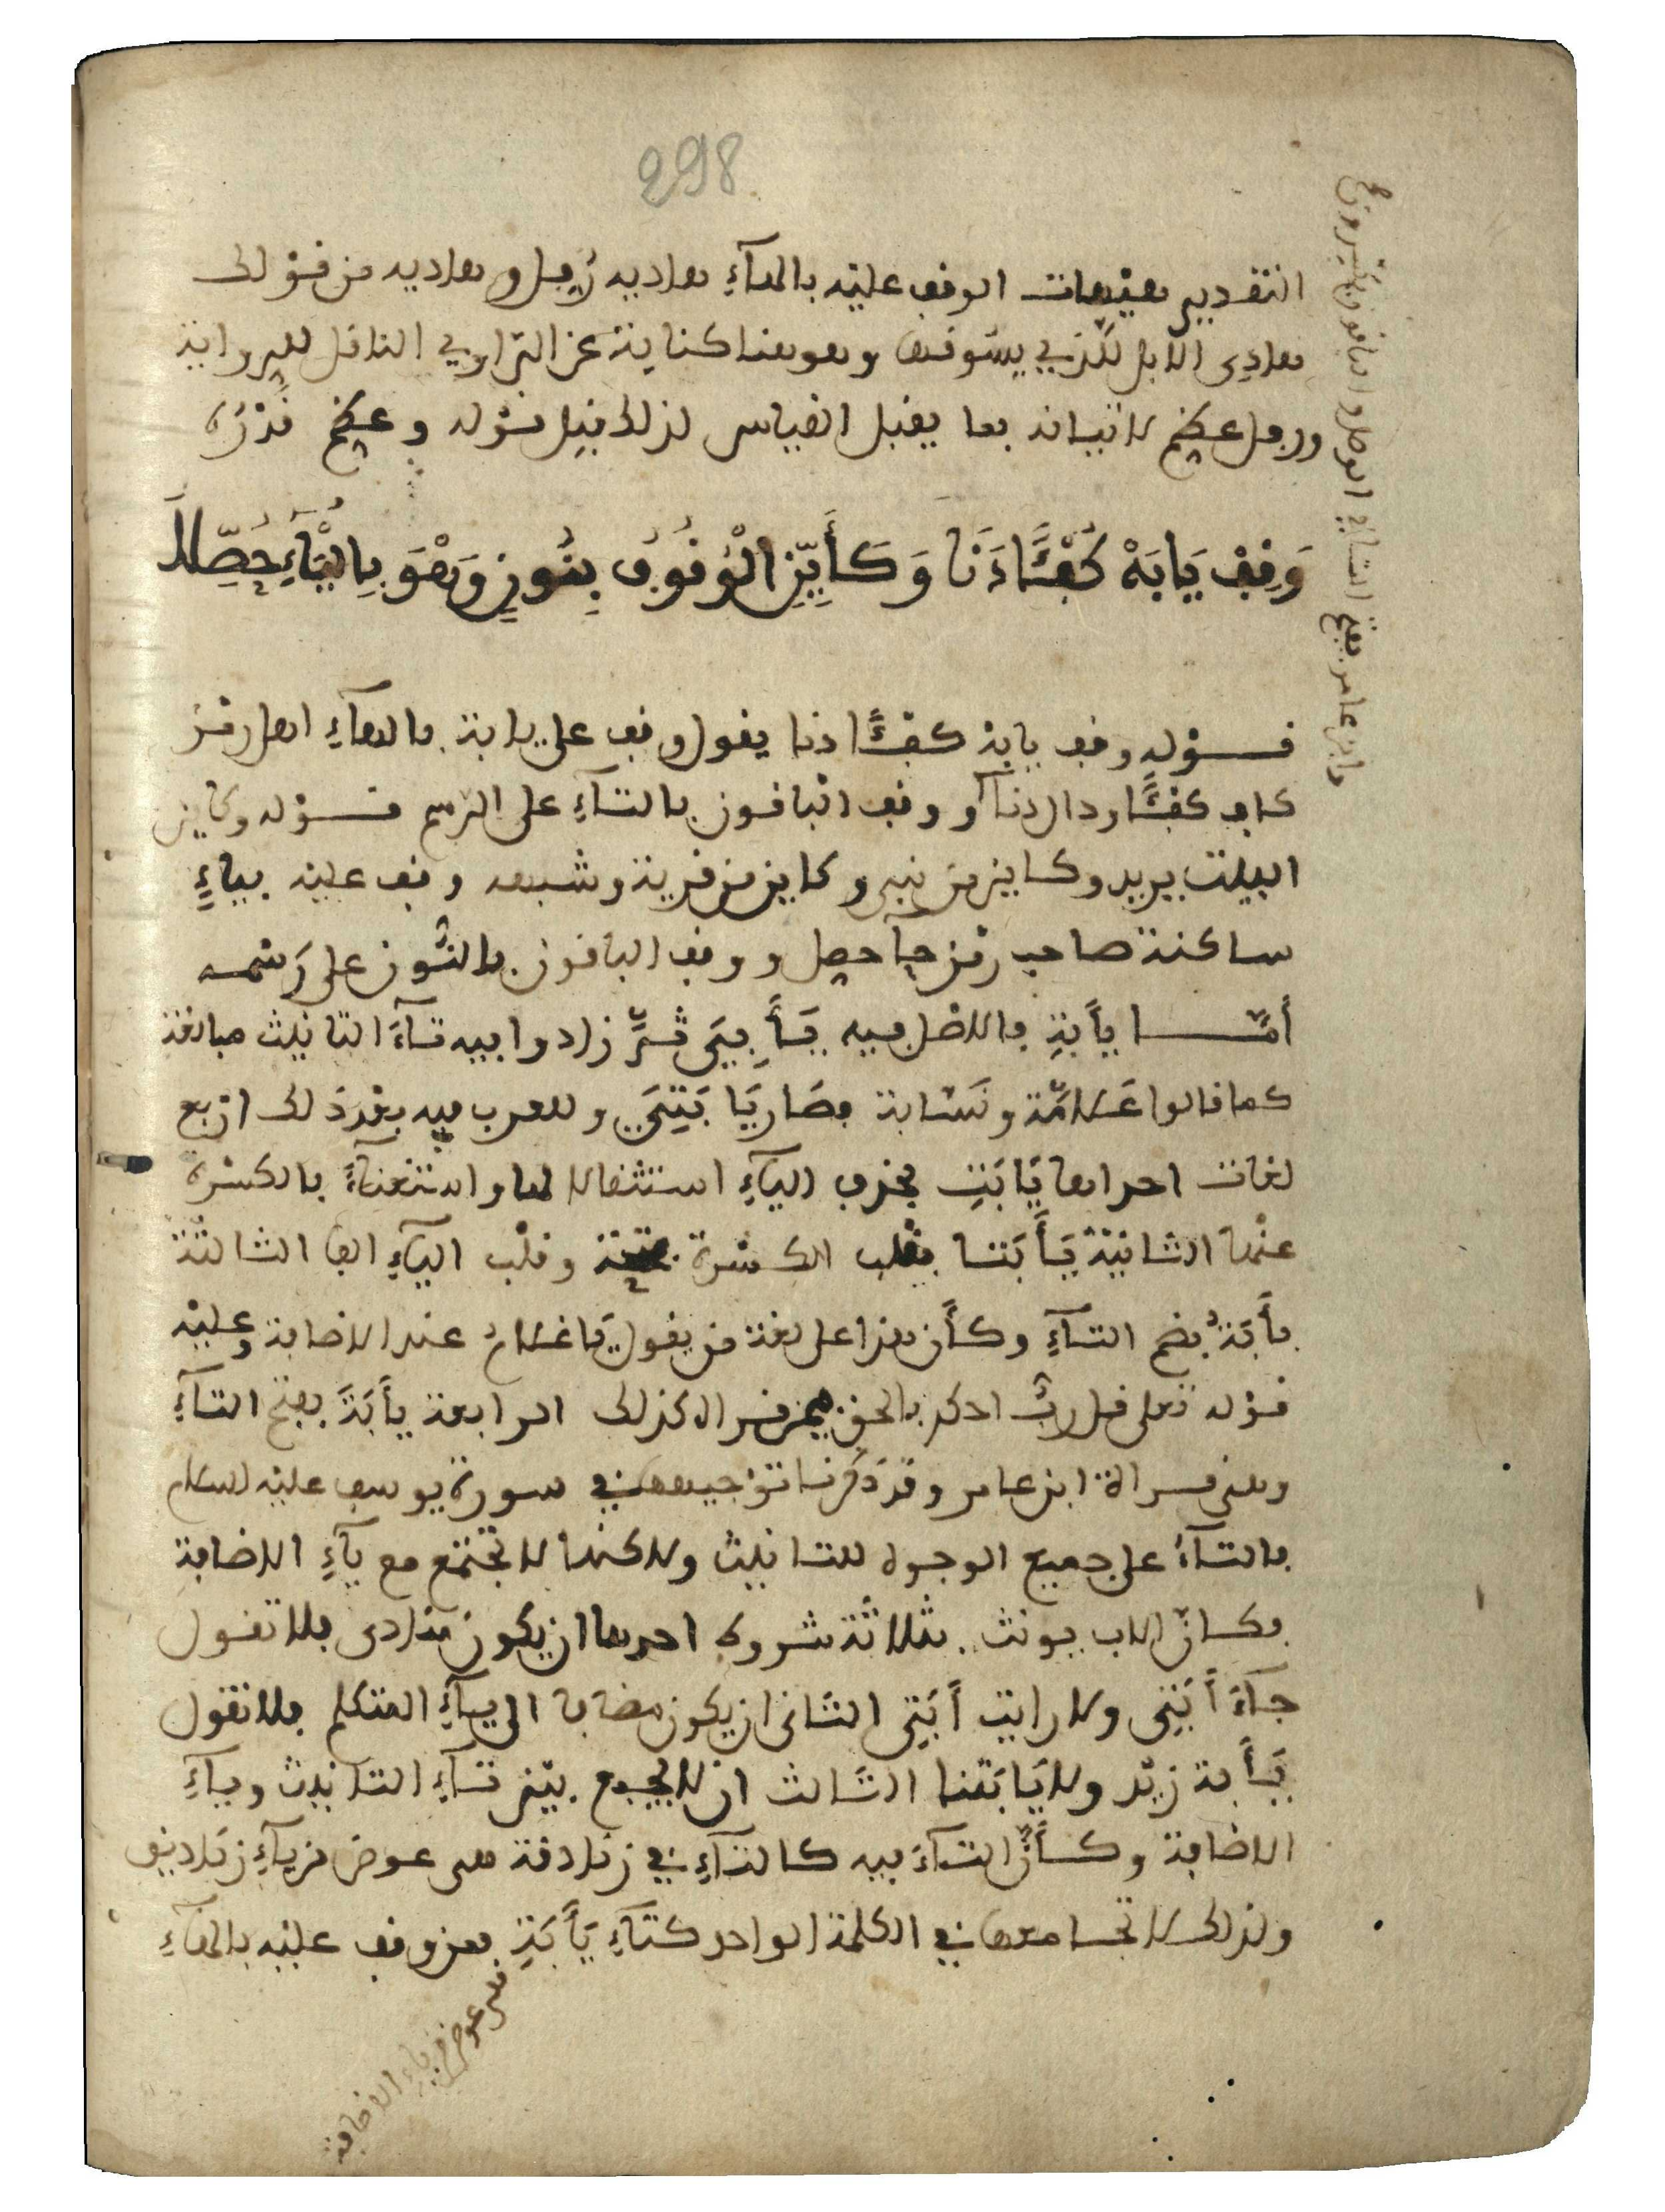 298
التقدير هيهات الوقف عليه بالهاء هاديه رفلا وهاديه من قولك
هادى الابل للذي يسوقها وهو هنا كناية عن الراوي الناقل للرواية
ورفل عظم لاتيانه بما يقبل القياس لذلك قيل قوله وعظم قدره
وَقِفْ يَا أَبَهْ كُفْئًا دَنَا وَكَأَيِّنِ الْوُقُوفُ بِنُونٍ وَهْوَ بِالْيَاءِ حُصِّلَا
قوله وقف يابه كفئا دنا يقول وقف على يا ابة بالهاء اهل رمز
كاف كفئا ودال دنا ووقف الباقون بالتاء على الرسم قوله وكاين
البيت يريد وكاين من نبي وكاين من قرية وشبهه وقف عليه بياء
ساكنة صاحب رمز حاء حصل ووقف الباقون بالنون على رسمه
أما يأبة فالاصل فيه يأبي ثم زادوا فيه تاء التانيث مبالغة
كما قالوا علامة ونسابة فصار يا بتي وللعرب فيه بعد ذلك اربع
لغات احداها يا بت بحذف الياء استثقالا لها واستغناء بالكسرة
عنها الثانية يأبتا بقلب الكسرة فتحة وقلب الياء الفا الثالثة
يأبة بضم التاء وكأن هذا على لغة من يقول يا غلام عند الاضافة وعليه
قوله تعلى قل رب احكم بالحق فيمن قرا كذلك الرابعة يأبة بفتح التاء
وهى قراة ابن عامر وقد ذكرنا توجيهها في سورة يوسف عليه السلام
فالتاء على جميع الوجوه للتانيث ولاكنها لا تجتمع مع ياء الاضافة
فكان الاب يونث بثلاثة شروط احدها ان يكون منادى فلا تقول
جاء أبتى ولا رايت أبتي الثانى ان يكون مضافا الى ياء المتكلم فلا تقول
يأبة زيد ولا يا بتنا الثالث ان لا يجمع بين تاء التانيث وياء
الاضافة وكأن التاء فيه كالتاء في زنادقة هى عوض من ياء زناديق
ولذلك لا تجامعها في الكلمة الواحد كتاء يأبة فمن وقف عليه بالهاء
هى عوض من ياء الاضافة
وابن عامر بفتح التاء في الوصل والباقون بكسرها